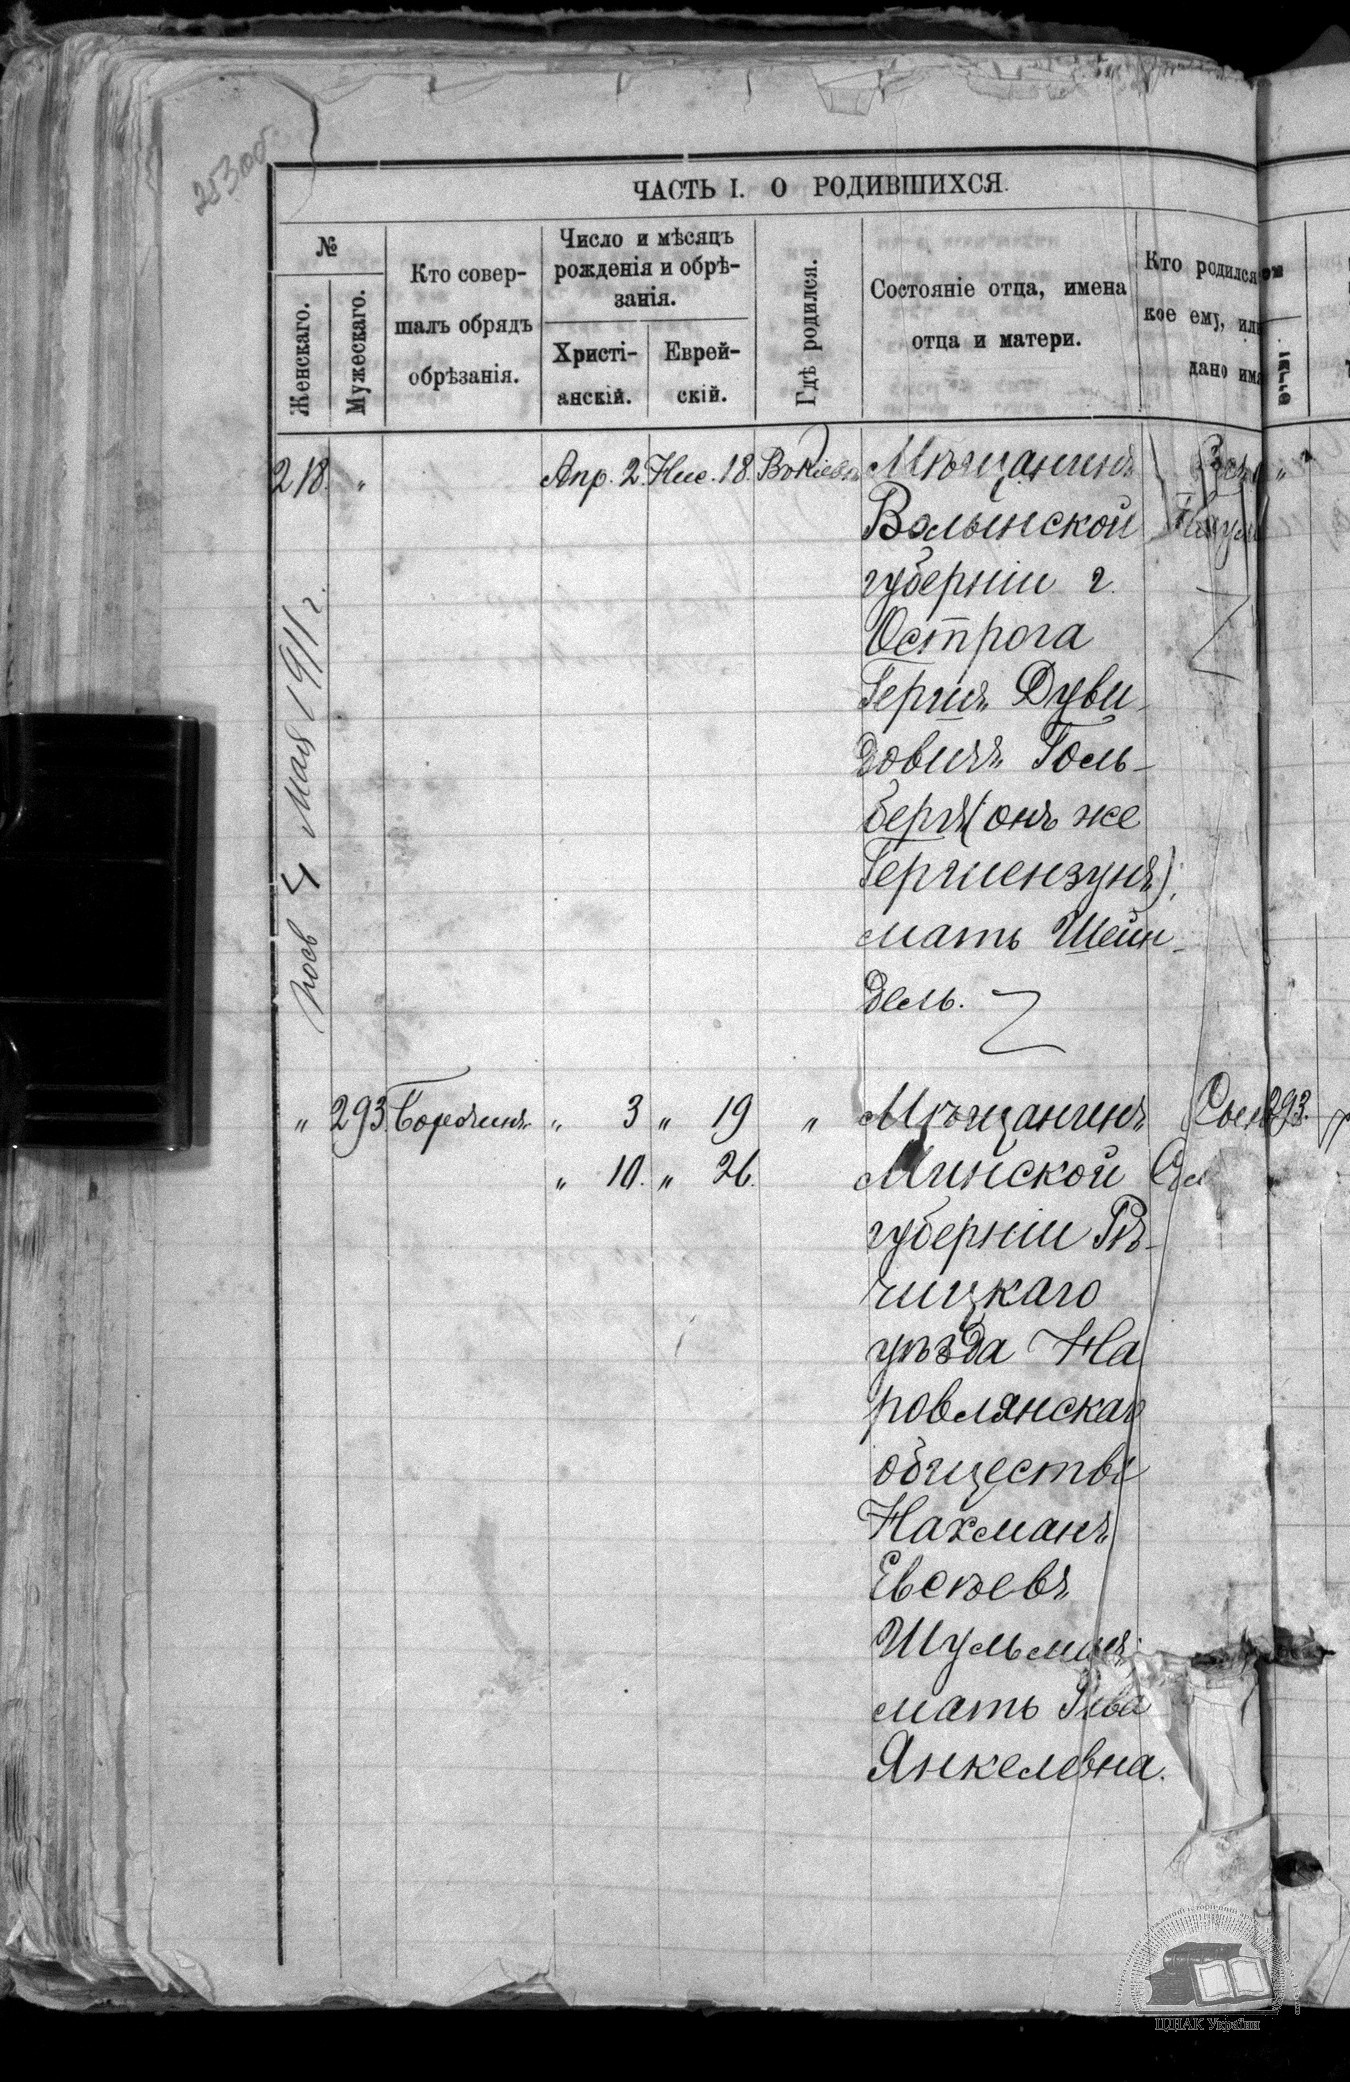 253об.
ЧАСТЬ I. О РОДИВШИХСЯ.
№
Женскаго.
Мужескаго.
Кто совер-
шалъ обрядъ
обрѣзанія.
Число и мѣсяцъ
рожденія и обрѣ-
занія.
Христі-
анскій.
Еврей-
скій.
Гдѣ родился.
Состояніе отца, имена
отца и матери.
Кто родился
кое ему, или
дано имя
218. „ Апр. 2. Нис. 18. Въ Кіевѣ Мѣщанинъ
Волынской
губерніи г.
Острога
Гершъ Дуви-
довичъ Голь-
бергъ (онъ же
Гершензунъ);
мать Шейн-
дель.
4 Мая 1911 г.
„ 293 „ 3 „ 19 „ Мѣщанинъ 293.
„ 10. „ 26. Минской
губерніи Рѣ-
чицкаго
уѣзда На
ровлянскаго
общества
Нахманъ
Евсѣевъ
Шульманъ
мать Рива
Янкелевна.
ЦДІАК України